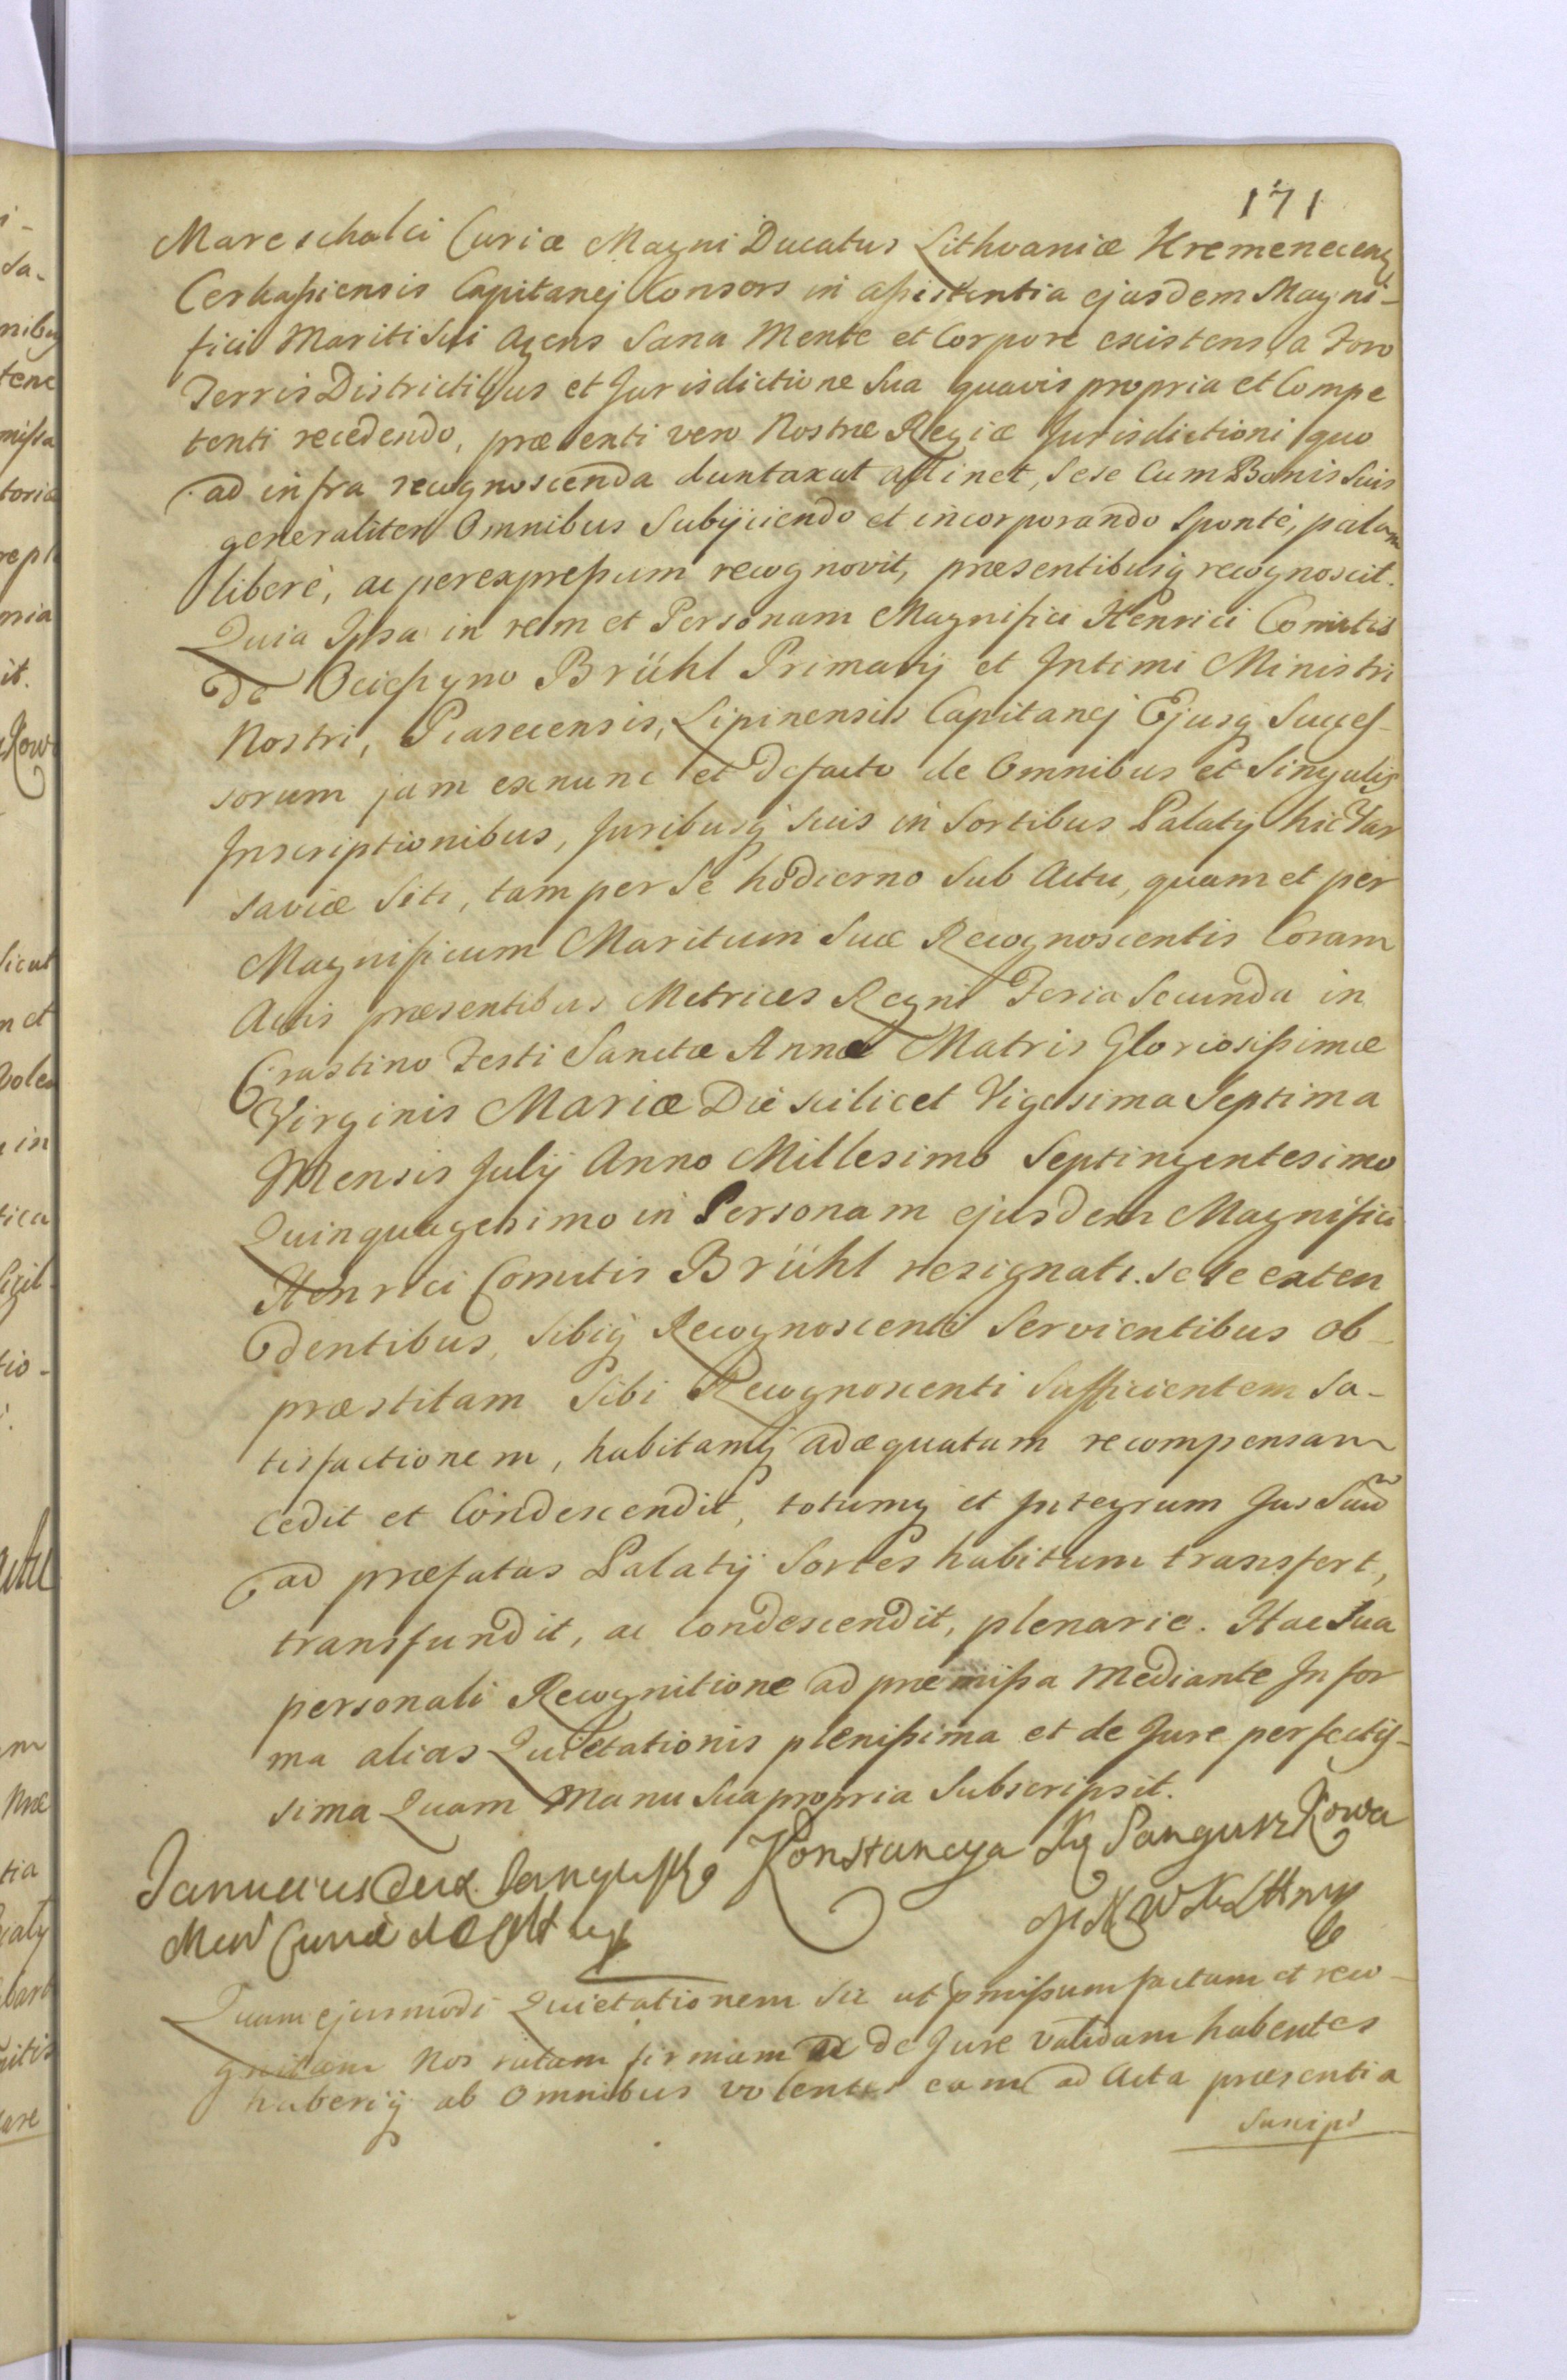 171
Mareschalci Curiæ Magni Ducatus Lithvaniæ Kremenecenɜ
Cerkaßiensis Capitanej Consors in aßistentia ejusdem Magni-
fici Mariti Sui agens Sana Mente et Corpore existens, a Foro
Terris Districtibus et Jurisdictione Sua quavis propria et Compe
tenti recedendo, præsenti vero Nostræ Regiæ Jurisdictioni quo
ad infra recognoscenda duntaxat attinet, sese Cum Bonis Suis
generaliter Omnibus Subijciendo et incorporando Sponté, palam
liberé, ac perexpreßum recognovit, præsentibusq recognoscit.
Quia Ipsa in rem et Personam Magnifici Henrici Comitis
de Ocieszyno Brühl Primarij et Intimi Ministri
Nostri, Piasecensis, Lipinensis Capitanej Ejusq Succes-
sorum jam exnunc et defacto de Omnibus et Singulis
Inscriptionibus, Juribusq suis in Sortibus Palatij hic Var
saviæ Siti, tam per Se hodierno Sub Actu, quam et per
Magnificum Maritum Suæ Recognoscentis Coram
Actis præsentibus Metrices Regni Feria Secunda in
Crastino Festi Sanctæ Annæ Matris Gloriosißimæ
Virginis Mariæ Die scilicet Vigesima Septima
Mensis Julij Anno Millesimo Septingentesimo
Quinquagesimo in Personam ejusdem Magnifici
Henrici Comitis Brühl resignati. sese exten
dentibus, Sibiq Recognoscenti Servientibus ob-
præstitam Sibi Recognoscenti Sufficientem sa-
tisfactionem, habitamq adæquatam recompensam
cedit et Condescendit, totumq et Integrum Jus Suũ
ad præfatas Palatij Sortes habitum transfert,
transfundit, ac Condescendit, plenarie. Hac Sua
personali Recognitione ad præmißa Mediante In for
ma alias Quietationis plenißima et de Jure perfectis-
sima Quam Manu Sua propria Subscripsit.
Konstancya Xɜ Sanguszkowa
Quam ejusmodi Quietationem sic ut pmißum factam et reco-
gnitam Nos ratam firmam ac de Jure validam habentes
haberiq ab Omnibus volentes eam ad Acta præsentia
suscipi